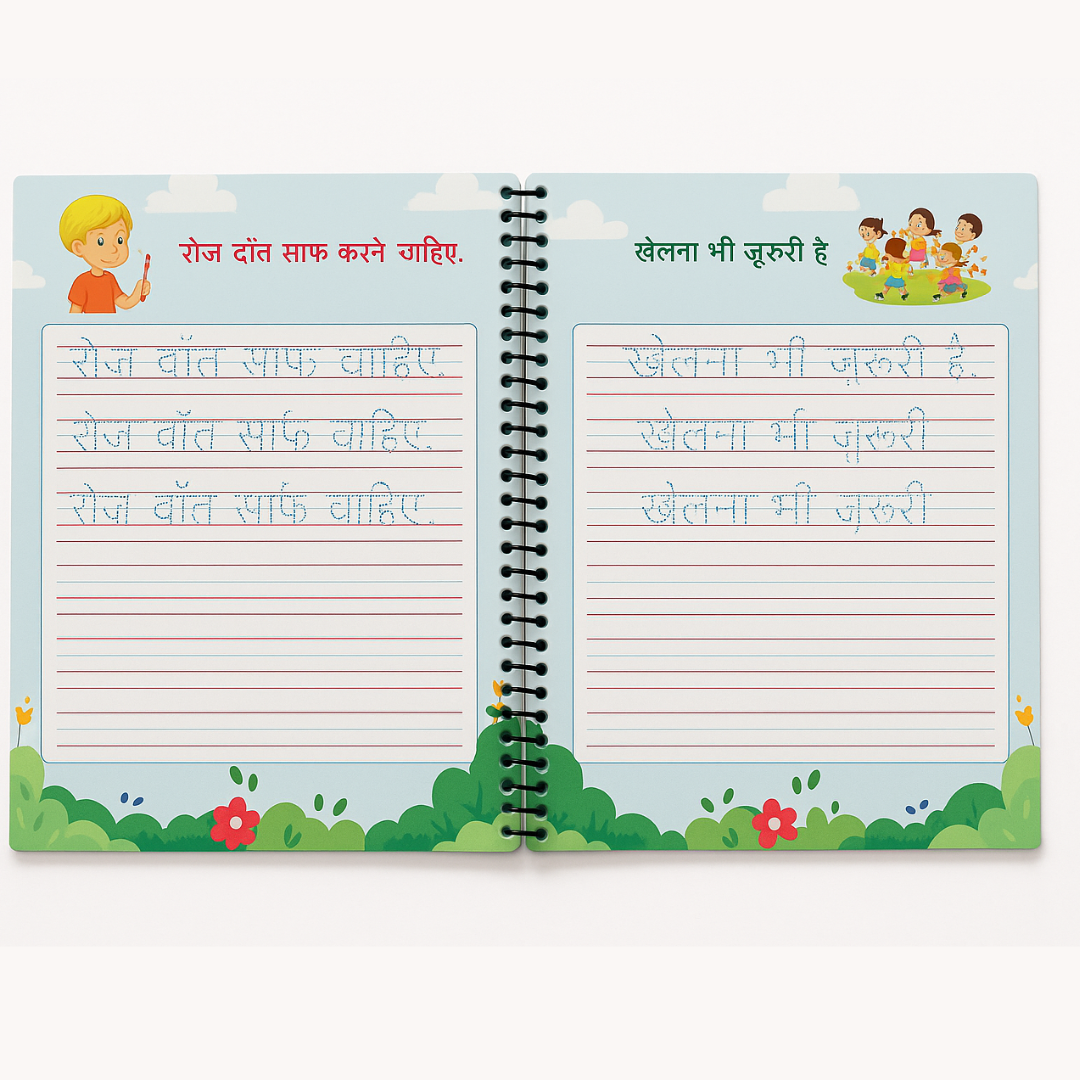 रोज दाॅंत साफ करने चाहिए.
रोज वाॅत साफ वाहिए.
रोज वाॅत सार्फ वाहिए.
रोज वाॅत सार्फ वाहिए.
खेलना भी जूरुरी है
खेलना भी जूरूरी है.
खेलना र्भा जूरूरी
खेलना भी जूरूरी